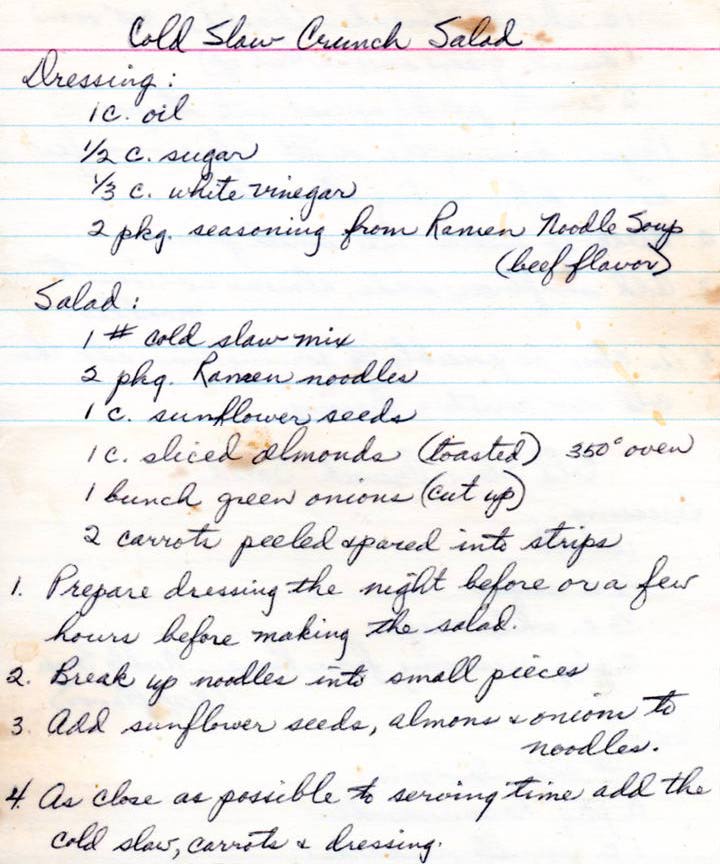 Cold Slaw Crunch Salad
Dressing:
1 c. oil
1/2 c. sugar
1/3 c. white vinegar
2 pkg. seasoning from Ramen Noodle Soup
(beef flavor)
Salad:
1 # cold slaw mix
2 pkg. Ramen noodles
1 c. sunflower seeds
1 c. sliced almonds (toasted) 350° oven
1 bunch green onions (cut up)
2 carrots peeled & pared into strips
1. Prepare dressing the night before or a few
hours before making the salad.
2. Break up noodles into small pieces
3. Add sunflower seeds, almons & onions to
noodles.
4. As close as possible to serving time add the
cold slaw, carrots & dressing.